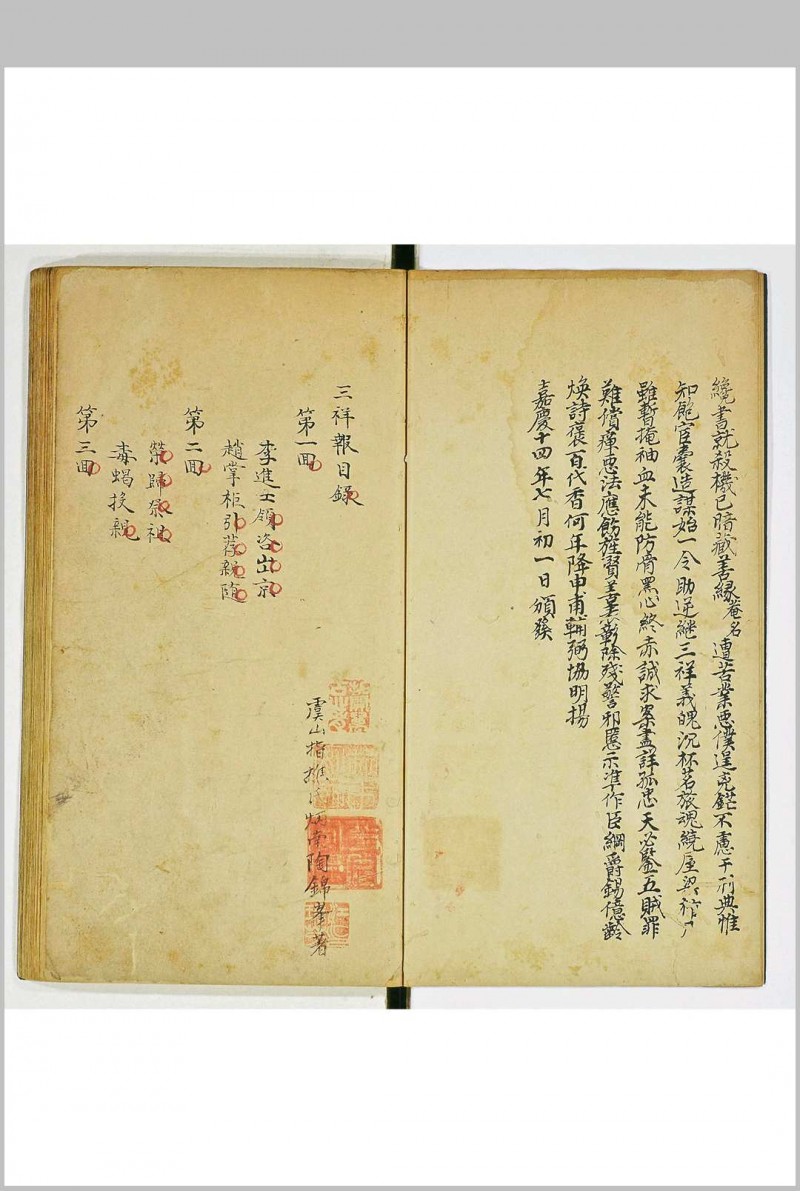 纔書就殺機已暗藏善緣菴名遭苦業惡僕逞兇鋩不慮干刑典惟
知飽宦囊造謀始一令助逆継三祥義魄沉杯茗旅魂繞屋梁
雖暫掩袖血未能防骨黑心終赤誠求案盡詳孤忠天必鑒五賊罪
難償癉惡法應飭旌賢善彰除殘警邪慝示準作臣綱爵錫億齡
煥詩褒百代香何年降申甫輔弼協明揚
嘉慶十四年七月初一日頒發
三祥報目錄
第一囬
李進士領咨出京
趙掌柜引荐親随
第二囬
榮歸祭祖
毒蝎授親
第三囬
虞山 炳南陶錦峯著